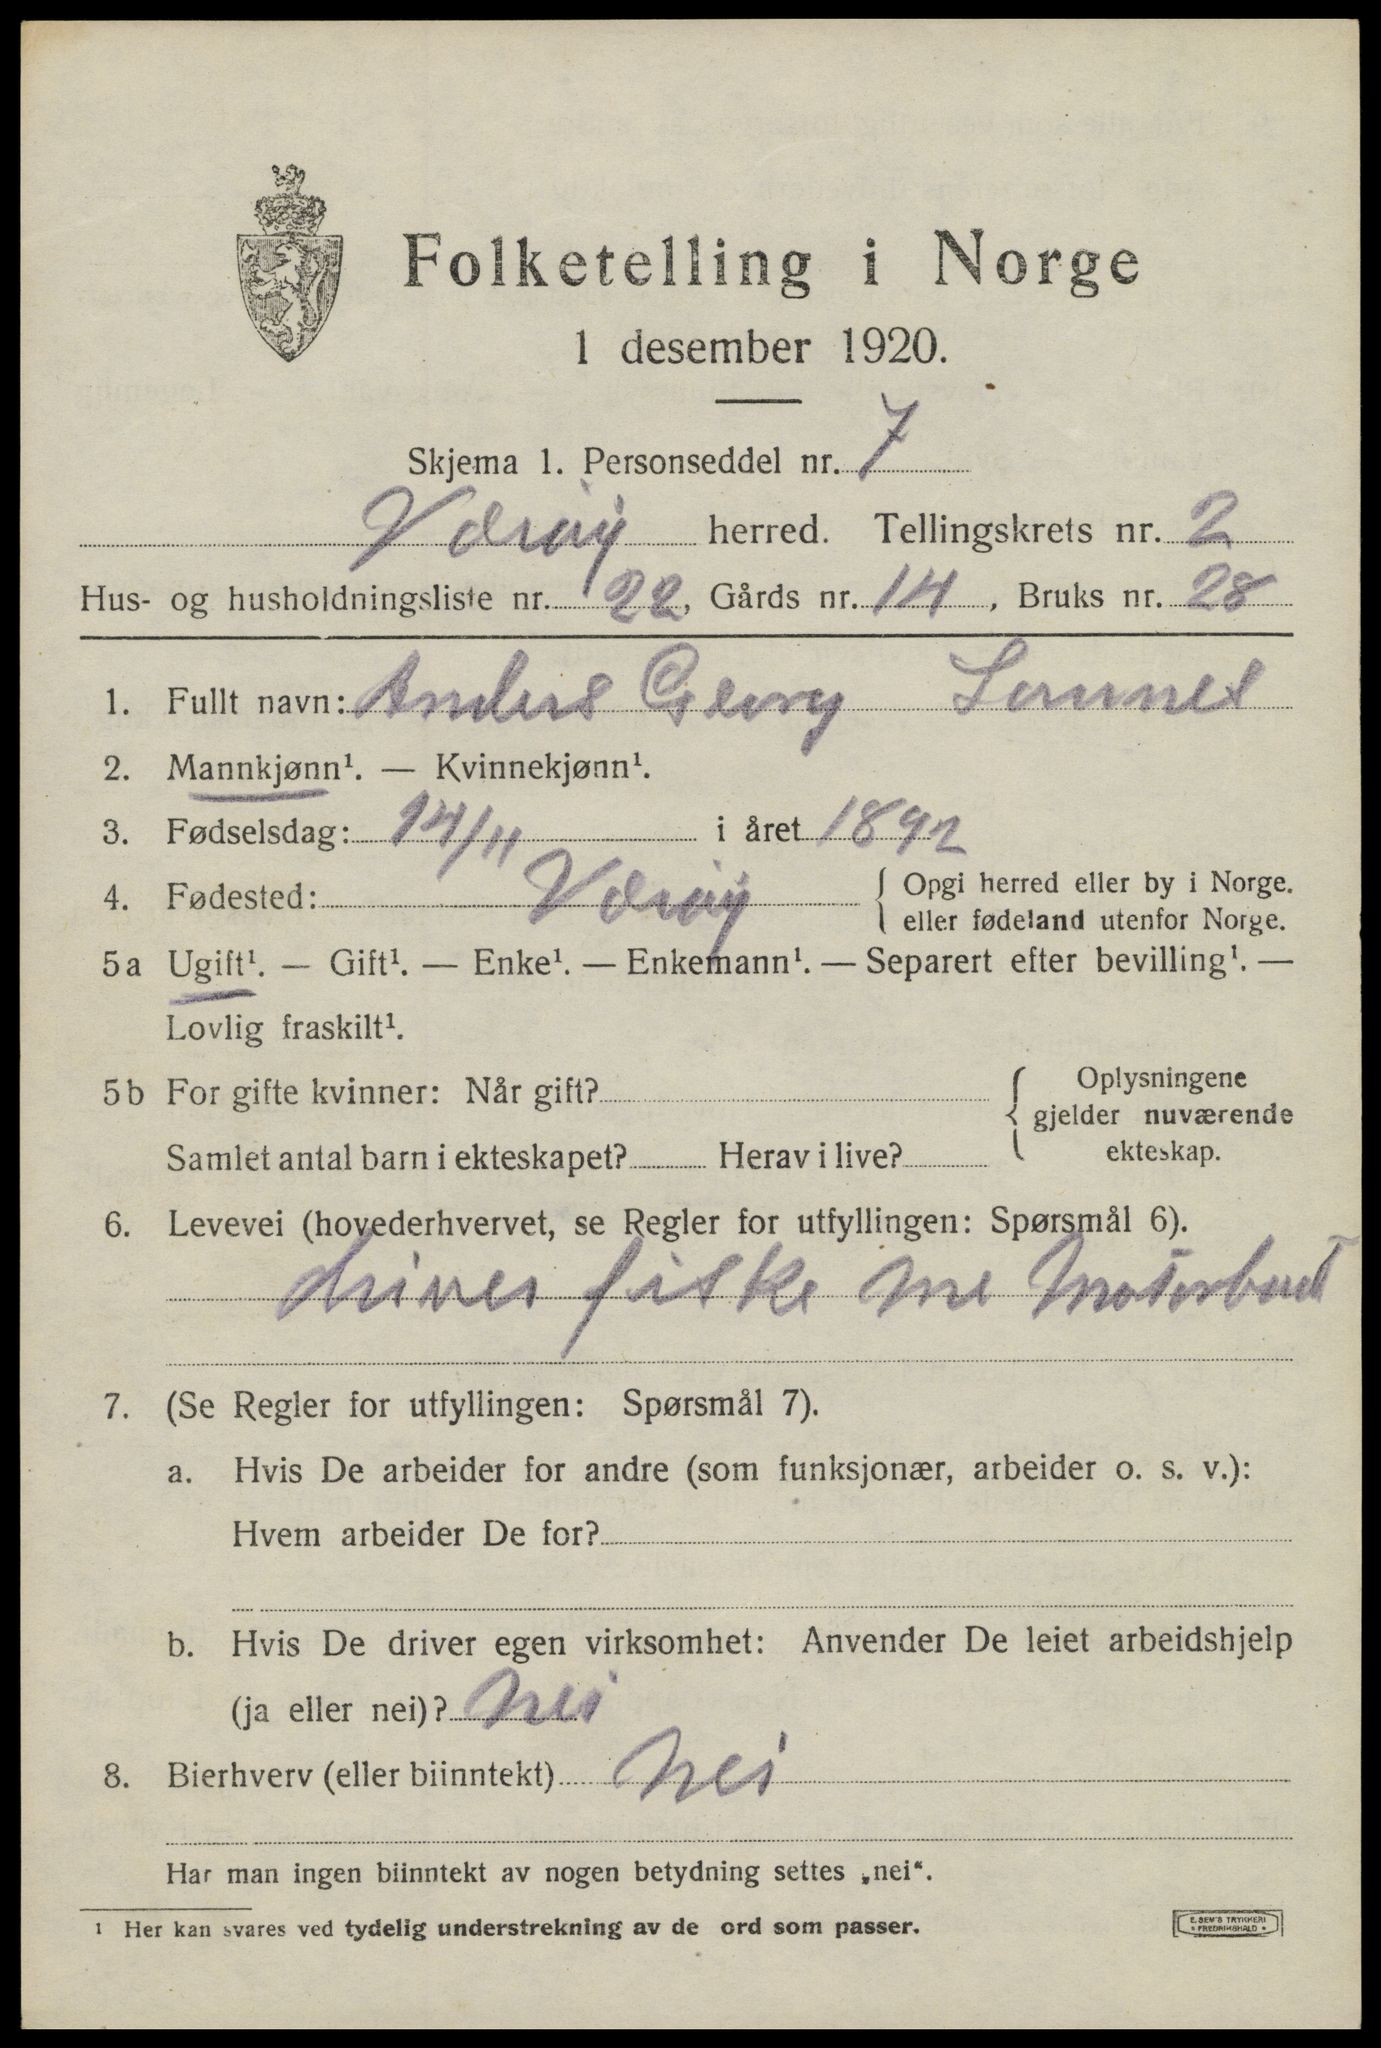 Folketelling i Norge
1 desember 1920.
Skjema 1. Personseddel nr. 7
Værøy herred. Tellingskrets nr. 2
Hus- og husholdningsliste nr. 22, Gårds nr. 14, Bruks nr. 28
1. Fullt navn: Anders Georg
2. Mannkjønn¹. — Kvinnekjønn¹.
3. Fødselsdag: 14/11 i året 1892
4. Fødested: Værøy { Opgi herred eller by i Norge.
eller fødeland utenfor Norge.
5 a Ugift¹. — Gift¹. — Enke¹. — Enkemann¹. — Separert efter bevilling¹. —
Lovlig fraskilt¹.
5 b For gifte kvinner: Når gift? { Oplysningene
gjelder nuværende
ekteskap.
Samlet antal barn i ekteskapet? Herav i live?
6. Levevei (hovederhvervet, se Regler for utfyllingen: Spørsmål 6).
driver fiske me Motorbaat
7. (Se Regler for utfyllingen: Spørsmål 7).
a. Hvis De arbeider for andre (som funksjonær, arbeider o. s. v.):
Hvem arbeider De for?
b. Hvis De driver egen virksomhet: Anvender De leiet arbeidshjelp
(ja eller nei)? nei
8. Bierhverv (eller biinntekt) nei
Har man ingen biinntekt av nogen betydning settes „nei“.
¹ Her kan svares ved tydelig understrekning av de ord som passer.
E. SEM'S TRYKKERI
* FREDRIKSHALD *